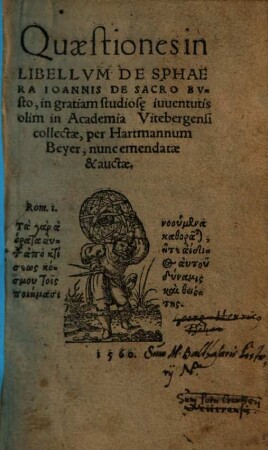 Quæstiones in
LIBELLVM DE SPHAE
RA IOANNIS DE SACRO BV-
sto, in gratiam studiosę iuuentutis
olim in Academia Vitebergensi
collectæ, per Hartmannum
Beyer, nunc emendatæ
& auctæ.
Rom. 1.
Τὰ γὰρ ἀ
όρατα αυ-
τ͂ ἀπὸ κτί
σεως κόσ
μου τοῖς
ποιήμασι
νοούμενα
καθορᾶτ,
ἥ τε ἀΐδιος
αὐτοῦ
δύναμις
καὶ θειό
της.
1560. Sum M. Balthasaris
Sum